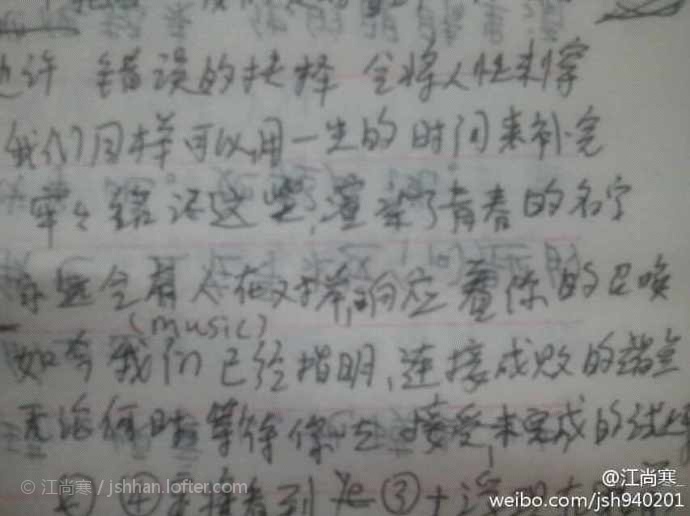 也许 错误的抉择 会将人性刺穿
我们同样可以用一生的时间来补完
牢牢铭记这些,渲染了青春的名字
永远会有人在对岸,响应着你的召唤
(music)
如今我们已经指明,连接成败的锚点
无论何时 等待你去 接受,未完成的试炼
② ④ 到 ③ +
© 江尚寒 / jshhan.lofter.com
@江尚寒
weibo.com/jsh940201